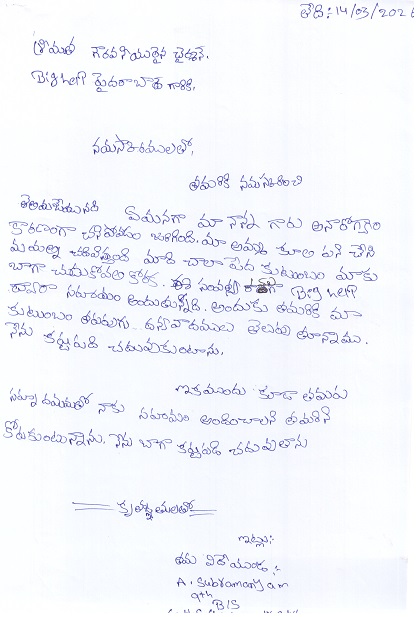 తేది:-14/03/202
శ్రీమతి గౌరవనీయులైన చైర్మన్.
Bighelp హైదరాబాద్ గారికి,
నమస్కారములతో,
తమరికి నమస్కరించి
తెలుపుకుంటుంది ఏమనగా మా నాన్న గారు అనారోగ్యం
కారణంగా చనిపోవడం జరిగింది. మా అమ్మ కూలి పని చేసి
మమల్ని చదివిస్తుంది మాది చాలా పేద కుటుంబం మాకు
బాగా చదుకోవాలి కోరిక. ఈ సంవత్స Big help
ద్వారా సహాయం అందుతున్నది. అందుకు తమరికి మా
కుటుంబం తరుపున ధన్యవాదములు తెలుపు తూన్నాము.
నేను కష్టపడి చదువుకుంటాను.
ఇకముందు కూడా తమరు
నాకు సహాయం అందించాలని తమరిని
కోరుకుంటున్నాను. నేను బాగా కష్టపడి చదువుతాను
కృతజ్ఞతలతో
ఇట్లు:-
తమ విదేయుండు:-
A. Subramanyam
9th
B/S